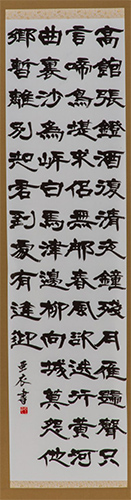 高館張鐙酒復清夜鐘殘月雁歸聲只
言啼鳥堪求侶無那春風欲送行黃河
曲裏沙爲岸白馬津邊柳向城莫怨他
鄉暫離別知君到處有逢迎